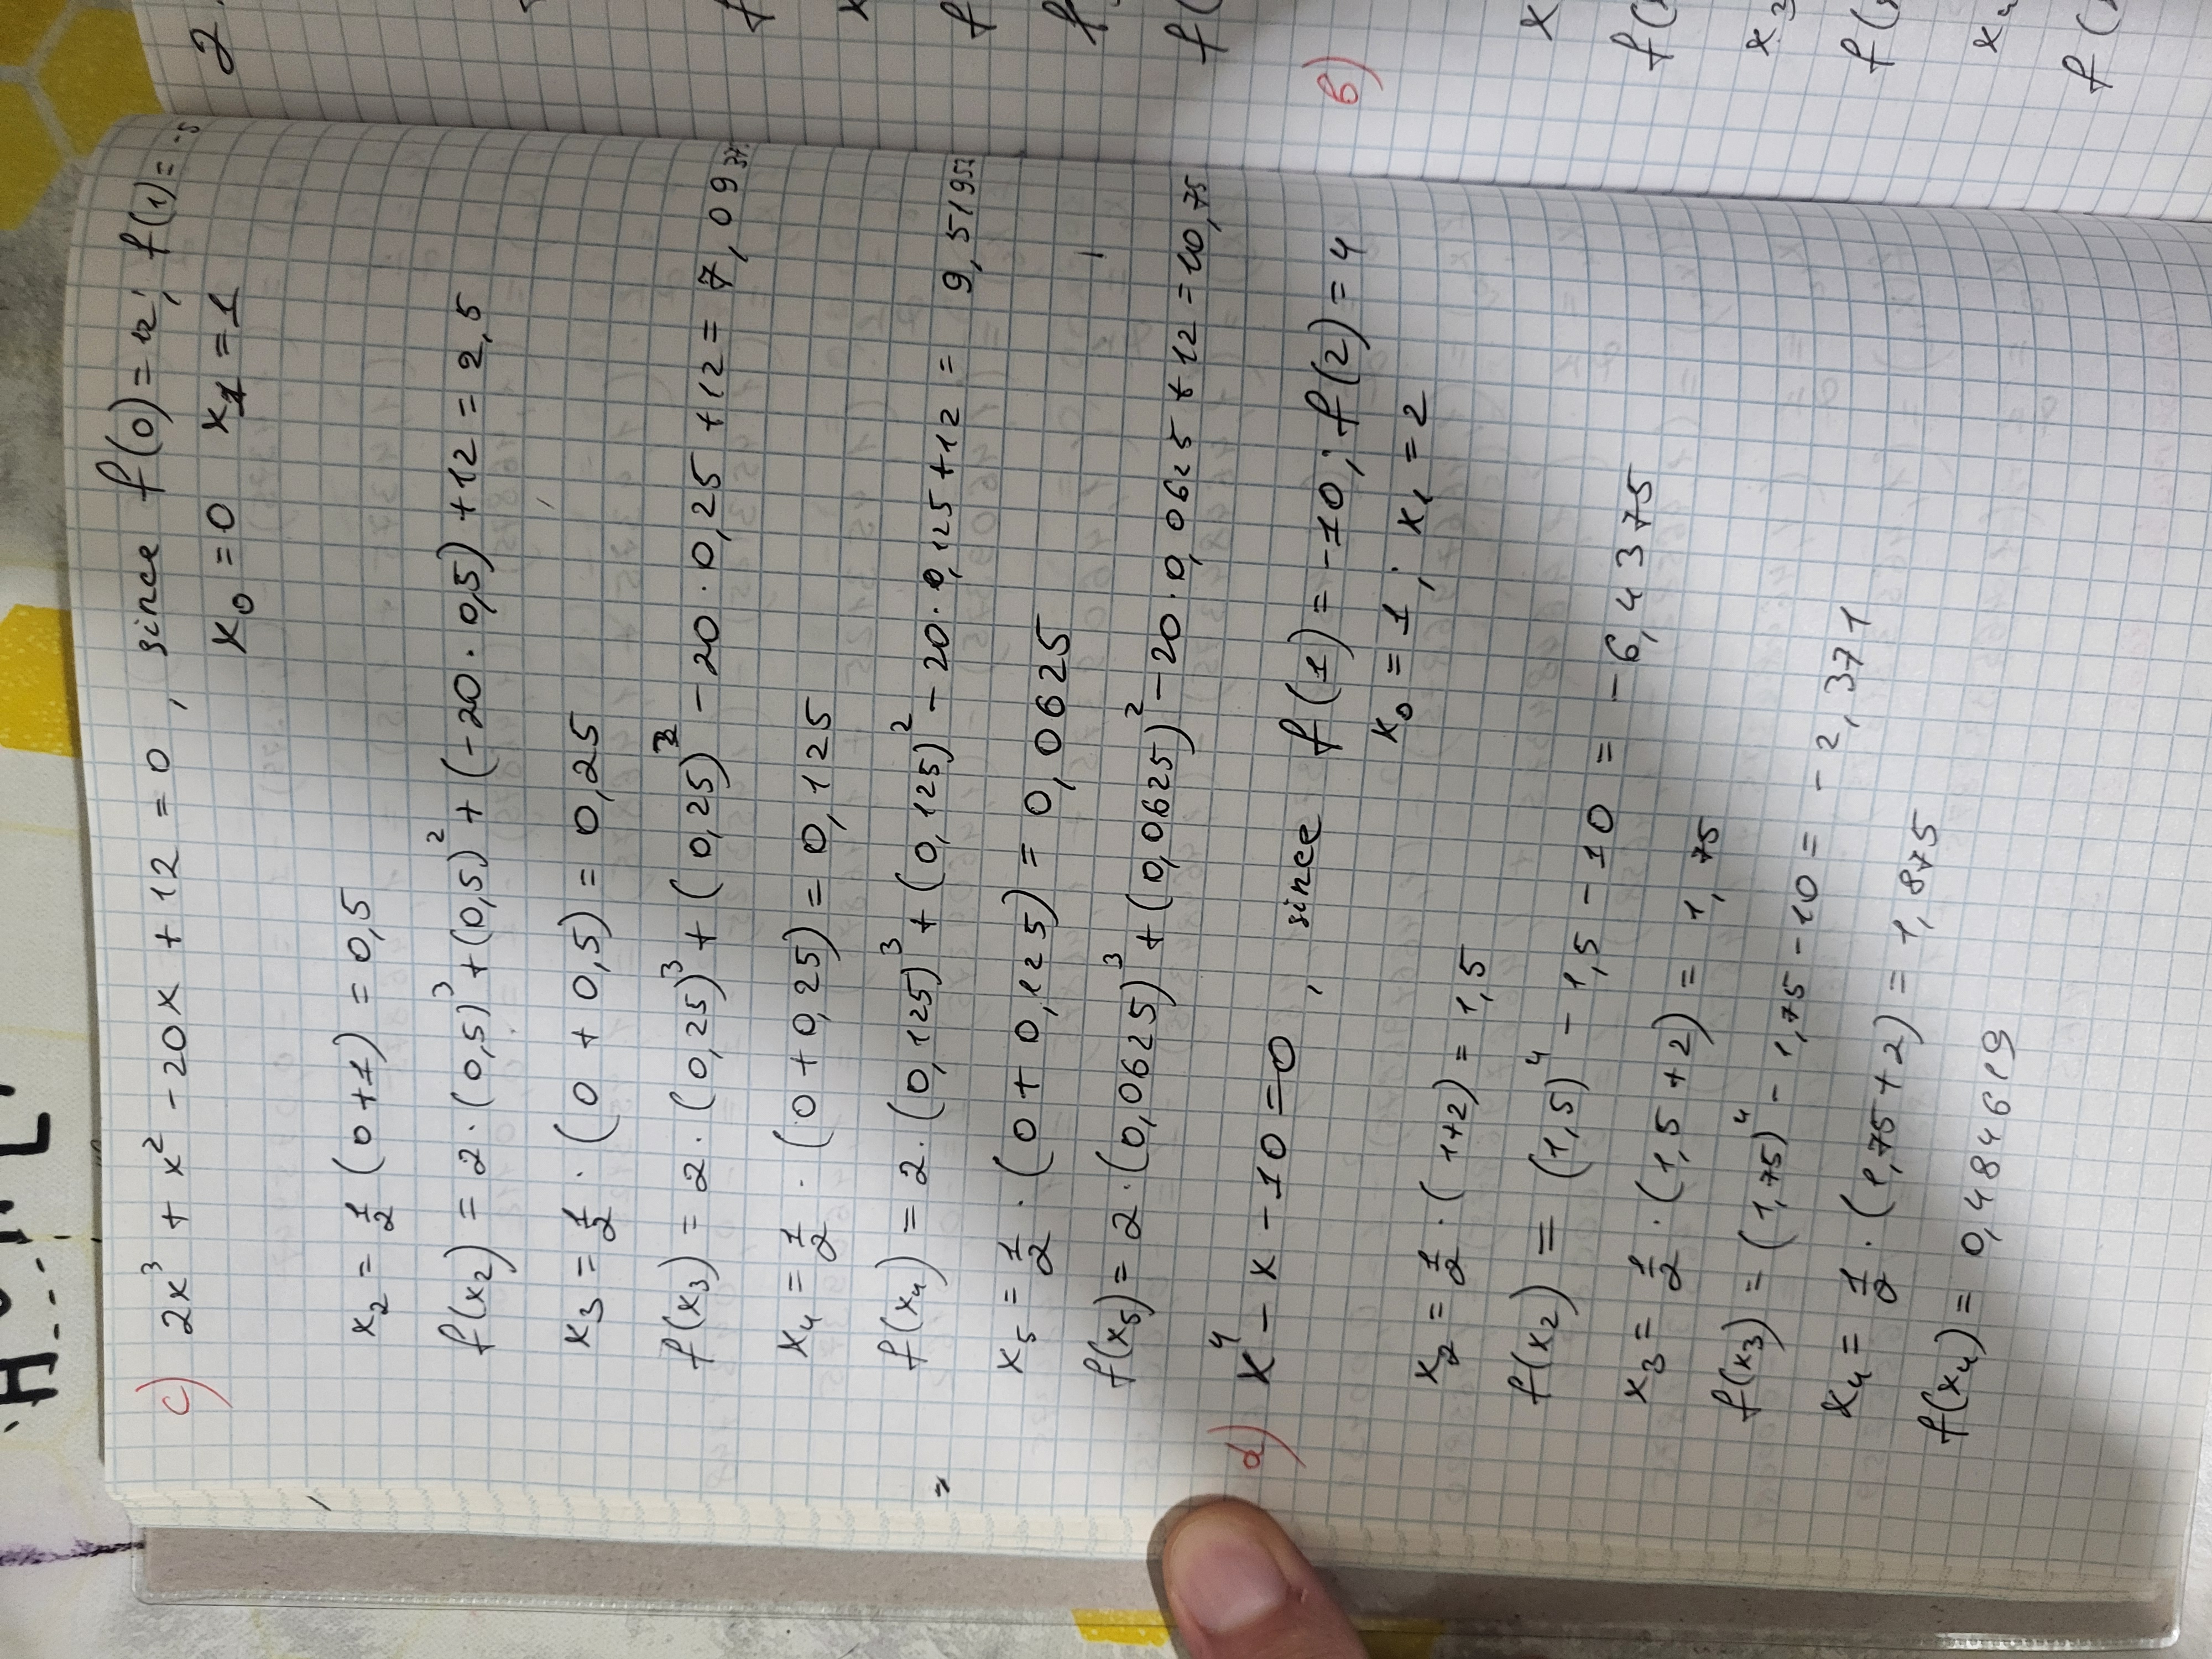 c) 2x³ + x² - 20x + 12 = 0 , since f(0) = 12; f(1) = -5
x₀ = 0 x₁ = 1
x₂ = 1/2 (0+1) = 0,5
f(x₂) = 2·(0,5)³ + (0,5)² + (-20·0,5) + 12 = 2,5
x₃ = 1/2 · (0 + 0,5) = 0,25
f(x₃) = 2·(0,25)³ + (0,25)² - 20·0,25 + 12 = 7,0937
x₄ = 1/2 · (0 + 0,25) = 0,125
f(x₄) = 2·(0,125)³ + (0,125)² - 20·0,125 + 12 = 9,51953
x₅ = 1/2 · (0 + 0,125) = 0,0625
f(x₅) = 2·(0,0625)³ + (0,0625)² - 20·0,0625 + 12 = 10,75
d) x⁴ - x - 10 = 0 , since f(1) = -10; f(2) = 4
x₀ = 1; x₁ = 2
x₂ = 1/2 · (1+2) = 1,5
f(x₂) = (1,5)⁴ - 1,5 - 10 = -6,4375
x₃ = 1/2 · (1,5 + 2) = 1,75
f(x₃) = (1,75)⁴ - 1,75 - 10 = -2,371
x₄ = 1/2 · (1,75 + 2) = 1,875
f(x₄) = 0,484619
2.
f
x
f
f
f(
b)
x
f(
x₃
f(
x₄
f(